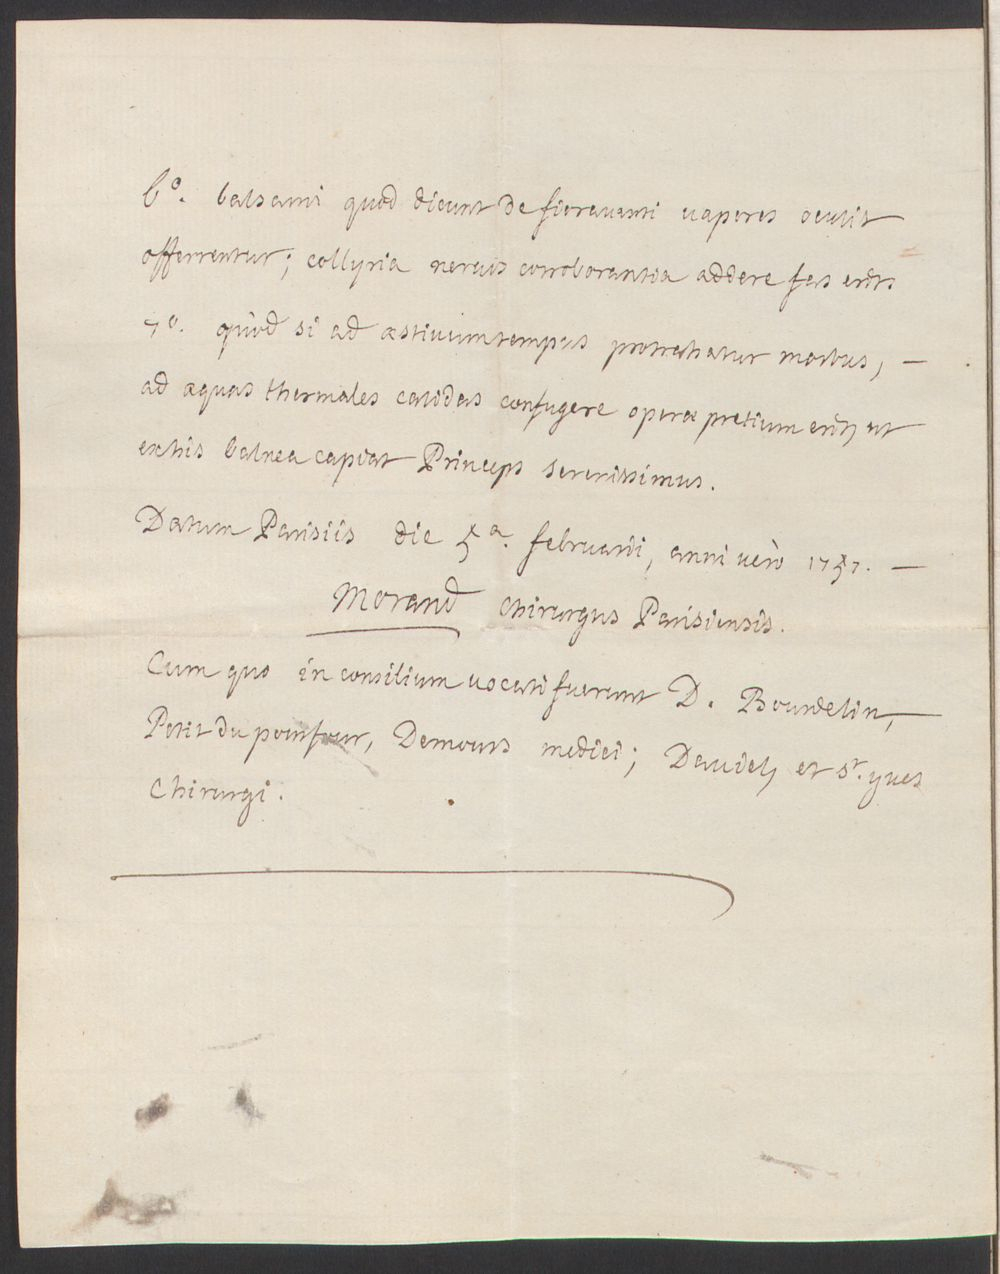 6°. balsami quod dicunt de fieravanti vapores oculis
offerrentur; collyria nervis corroborantia addere fas erit.
7°. quòd si ad æstivum tempus protrahatur morbus, —
ad aquas thermales calidas confugere operæ pretium erit, ut
ex his balnea capiat Princeps serenissimus.
Datum Parisiis die 5ª. februarii, anni verò 1757. —
Morand Chirurgus Parisiensis.
Cum quo in consilium vocati fuerunt D. Bourdelin, —
Petit du pouifour, Demours medici; Daviel, et St. yves
Chirurgi.